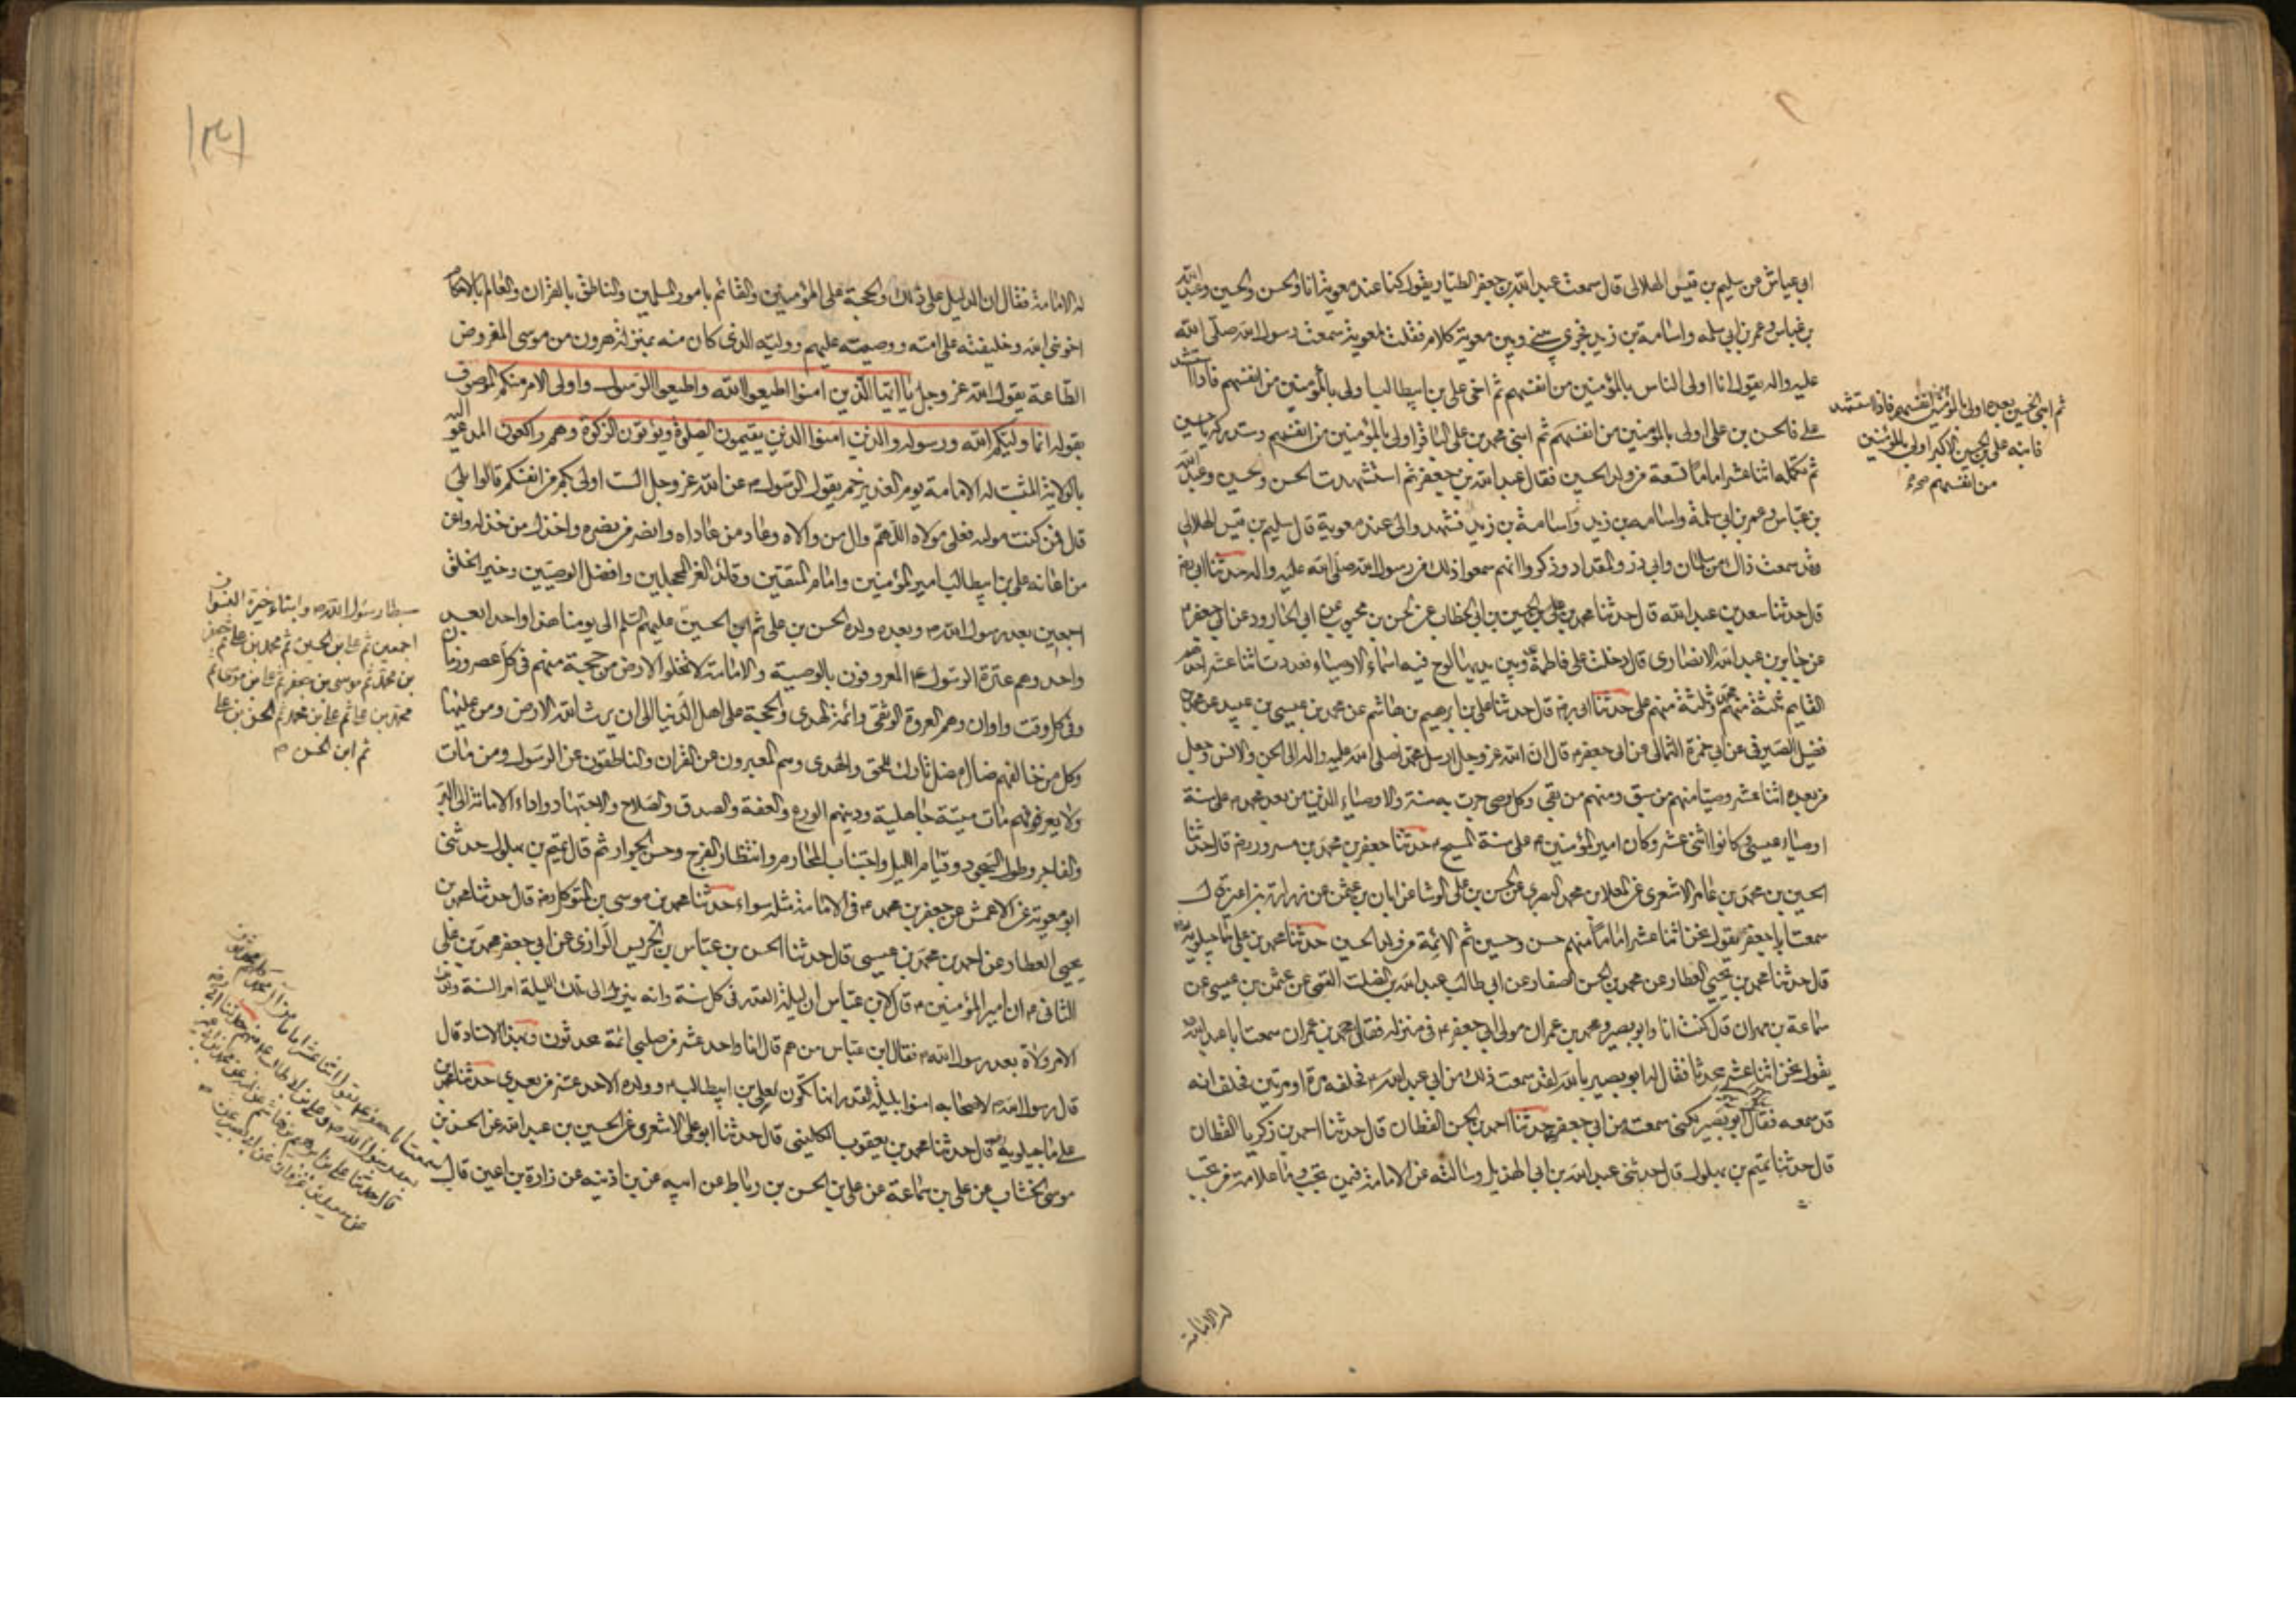 ابي عياش عن سليم بن قيس الهلالى قال سمعت عبد الله بن جعفر الطيار يقول كنا عند معوية انا والحسن والحسين وعبد الله
بن عباس وعمر بن ابي سلمه واسامة بن زيد فجرى بيني وبين معوية كلام فقلت لمعوية سمعت رسول الله صلى الله
عليه واله يقول انا اولى الناس بالمؤمنين من انفسهم ثم اخى على بن ابيطالب اولى بالمؤمنين من انفسهم فاذا استشهد
على فالحسن بن على اولى بالمؤمنين من انفسهم ثم ابنى محمد بن على الباقر اولى بالمؤمنين من انفسهم وستدركه يا حسين
ثم تكمله اثنا عشر اماما تسعة من ولد الحسين فقال عبد الله بن جعفر ثم استشهدت الحسن والحسين وعبد الله
بن عباس وعمر بن ابى سلمة واسامه بن زيد واسامة بن زيد فشهدوا لى عند معوية قال سليم بن قيس الهلالي
وقد سمعت ذلك من سلمان وابي ذر والمقداد وذكروا انهم سمعوا ذلك من رسول الله صلى الله عليه واله حدثنا ابي رض
قال حدثنا سعد بن عبد الله قال حدثنا محمد بن الحسين بن ابي الخطاب عن الحسن بن محبوب عن ابي الجارود عن ابي جعفر ع
عن جابر بن عبد الله الانصارى قال دخلت على فاطمة ع وبين يديها لوح فيه اسماء الاوصياء فعددت اثنا عشر احدهم
القايم ثلثة منهم محمد وثلثة منهم على حدثنا ابى رض قال حدثنا على بن ابرهيم بن هاشم عن محمد بن عيسى بن عبيد عن محمد بن
فضيل الصيرفى عن ابي حمزة الثمالى عن ابى جعفر ع قال ان الله عز وجل ارسل محمدا صلى الله عليه واله الى الجن والانس وجعل
من بعده اثنا عشر وصيا منهم من سبق ومنهم من بقى وكل وصى جرت به سنة والاوصياء الذين من بعد محمد ص على سنة
اوصياء عيسى وكانوا اثنى عشر وكان امير المؤمنين ع على سنة المسيح ع حدثنا جعفر بن محمد بن مسرور رض قال حدثنا
الحسين بن محمد بن عامر الاشعرى عن المعلا بن محمد البصرى عن الحسن بن على الوشا عن ابان بن عثمن عن زرارة بن اعين قال
سمعت ابا جعفر يقول نحن اثنا عشر اماما منهم حسن وحسين ثم الائمة من ولد الحسين حدثنا محمد بن على ماجيلويه
قال حدثنا محمد بن يحيى العطار عن محمد بن الحسن الصفار عن ابى طالب عبد الله بن الصلت القمى عن عثمن بن عيسى عن
سماعة بن مهران قال كنت انا وابو بصير ومحمد بن عمران مولى ابي جعفر ع فى منزله فقال محمد بن عمران سمعت ابا عبد الله
يقول نحن اثنا عشر محدثا فقال له ابو بصير بالله لقد سمعت ذلك من ابى عبد الله ع فحلفه مرة او مرتين فحلف انه
قد سمعه فقال ابو بصير لكنى سمعته من ابي جعفر حدثنا احمد بن الحسن القطان قال حدثنا احمد بن زكريا القطان
قال حدثنا تميم بن بهلول قال حدثنى عبد الله بن ابي الهذيل وسالته عن الامامة فيمن تجب وما علامة من تجب
ثم ابنى الحسين بعده اولى بالمؤمنين من انفسهم فاذا استشهد
فابنه على بن الحسين الاكبر اولى بالمؤمنين
من انفسهم
له الامامة
له الامامة فقال ان الدليل على ذلك والحجة على المؤمنين والقائم بامور المسلمين والناطق بالقران والعالم بالاحكام
اخو نبى الله وخليفته على امته ووصيه عليهم ووليه الذى كان منه بمنزلة هرون من موسى المفروض
الطاعة يقول الله عز وجل يا ايها الذين امنوا اطيعوا الله واطيعوا الرسول واولى الامر منكم الموصوف
بقوله انما وليكم الله ورسوله والذين امنوا الذين يقيمون الصلوة ويؤتون الزكوة وهم راكعون المدعو اليه
بالولاية المثبت له الامامة يوم الغدير خم بقول الرسول ص عن الله عز وجل الست اولى بكم من انفسكم قالوا بلى
قال فمن كنت مولاه فعلى مولاه اللهم وال من والاه وعاد من عاداه وانصر من نصره واخذل من خذله واعن
من اعانه على بن ابيطالب امير المؤمنين وامام المتقين وقائد الغر المحجلين وافضل الوصيين وخير الخلق
اجمعين بعد رسول الله ص وبعده ولده الحسن بن على ثم ابن الحسين عليهم السلم الى يومنا هذا واحدا بعد
واحد وهم عترة الرسول ع المعروفون بالوصية والامامة لا تخلوا الارض من حجة منهم فى كل عصر وزمان
وفى كل وقت واوان وهم العروة الوثقى وائمة الهدى والحجة على اهل الدنيا الى ان يرث الله الارض ومن عليها
وكل من خالفهم ضال مضل تارك للحق والهدى وهم المعبرون عن القران والناطقون عن الرسول ومن مات
ولا يعرفهم مات ميتة جاهلية ودينهم الورع والعفة والصدق والصلاح والاجتهاد واداء الامانة الى البر
والفاجر وطول السجود وقيام الليل واجتناب المحارم وانتظار الفرج وحسن الجوار ثم قال تميم بن بهلول حدثنى
ابو معوية عن الاعمش عن جعفر بن محمد ع فى الامامة مثله سواء حدثنا محمد بن موسى بن المتوكل رض قال حدثنا محمد بن
يحيى العطار عن احمد بن محمد بن عيسى قال حدثنا الحسن بن عباس بن الحريس الرازى عن ابي جعفر محمد بن على
الثانى ع ان امير المؤمنين ع قال لابن عباس ان ليلة القدر فى كل سنة وانه ينزل فى تلك الليلة امر السنة ولذلك
الامر ولاة بعد رسول الله ص فقال ابن عباس من هم قال انا واحد عشر من صلبى ائمة محدثون وبهذا الاسناد قال
قال رسول الله ص لاصحابه امنوا بليلة القدر انها تكون لعلى بن ابيطالب ع وولده الاحد عشر من بعدي حدثنا محمد بن
على ماجيلويه قال حدثنا محمد بن يعقوب الكلينى قال حدثنا ابو على الاشعرى عن الحسين بن عبد الله عن الحسن بن
موسى الخشاب عن على بن سماعة عن على بن الحسن بن رباط عن ابيه عن بن اذينه عن زرارة بن اعين قال
سبطا رسول الله ص وابناء خيرة النسوان
اجمعين ثم على بن الحسين ثم محمد بن على ثم جعفر
بن محمد ثم موسى بن جعفر ثم على بن موسى ثم
محمد بن على ثم على بن محمد ثم الحسن بن على
ثم ابن الحسن
سمعت ابا جعفر ع يقول اثنا عشر اماما من ال محمد
بعد رسول الله ص وعلى بن ابى طالب ع منهم حدثنا ابى
قال حدثنا على بن ابرهيم بن هاشم عن ابيه عن محمد بن ابى عمير
عن سعيد بن غزوان عن ابى بصير عن